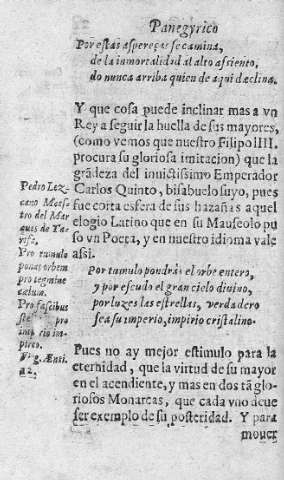 Panegyrico
Por estas asperezas se camina,
de la inmortalidad al alto assiento,
do nunca arriba quien de aqui declina.
Y que cosa puede inclinar mas a vn
Rey a seguir la huella de sus mayores,
(como vemos que nuestro Filipo IIII.
procura su gloriosa imitacion) que la
grãdeza del inuictissimo Emperador
Carlos Quinto, bisabuelo suyo, pues
fue corta esfera de sus hazañas aquel
elogio Latino que en su Mauseolo pu
so vn Poeta, y en nuestro idioma vale
assi.
Por tumulo pondràs el orbe entero,
y por escudo el gran cielo diuino,
por luzes las estrellas, verdadero
sea su imperio, impirio cristalino.
Pues no ay mejor estimulo para la
eternidad, que la virtud de su mayor
en el acendiente, y mas en dos tã glo
riosos Monarcas, que cada vno deue
ser exemplo de su posteridad. Y para
mouer
Pedro Lez
cano Maes
tro del Mar
ques de Ta
rifa,
Pro tumulo
ponas orbem
pro tegmine
cælum.
Pro facibus
pro
imperio im-
pireo.
Virg. Ænei.
12.